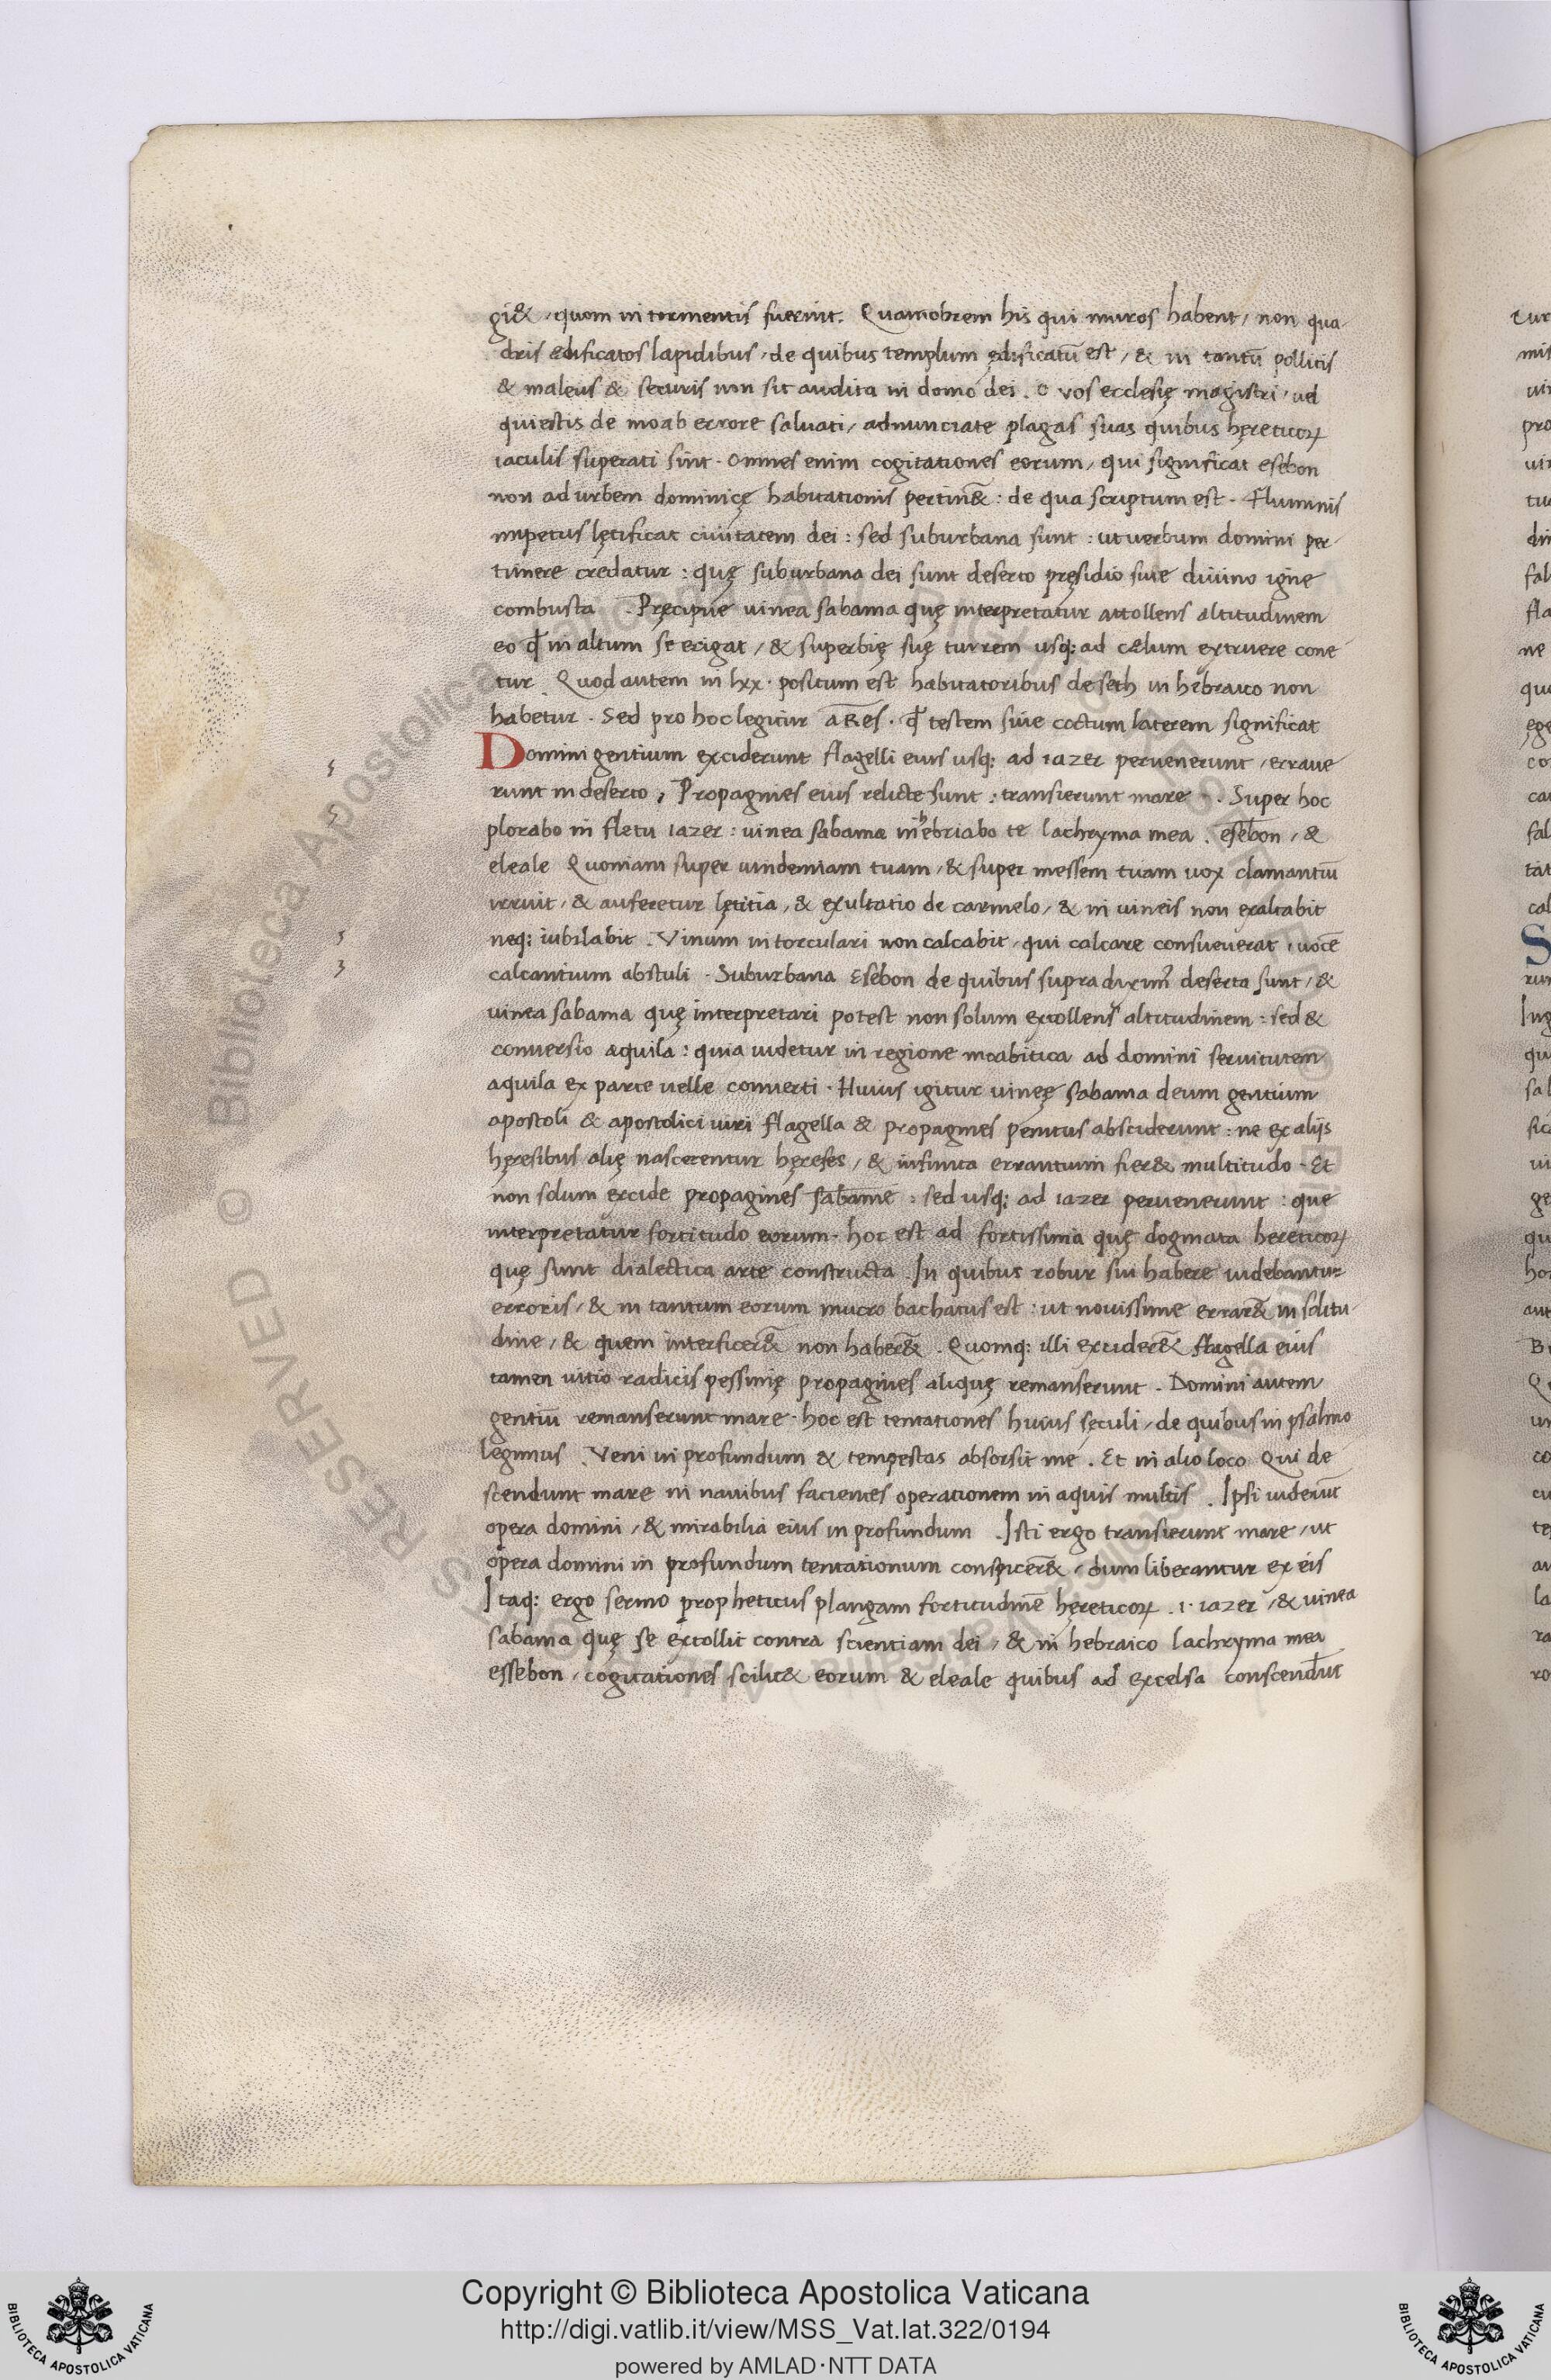 gi&, quom in tormentis fuerint. Quamobrem his qui muros habent, non qua-
dris edificatos lapidibus, de quibus templum ędificatū est, & in tantū pollitis
& maleus & securis non sit audita in domo dei. o vos ecclesię magistri, vel
qui estis de moab errore saluati, adnunciate plagas suas quibus hęreticoꝝ
iaculis superati sint. Omnes enim cogitationes eorum, qui significat esebon
non ad urbem dominicę habitationis pertin&: de qua scriptum est. Fluminis
impetus lętificat ciuitatem dei: sed suburbana sunt: ut uerbum domini per-
tinere credatur: quę suburbana dei sunt deserto pręsidio siue diuino igne
combusta. Pręcipue uinea sabama quę interpretatur attollens altitudinem
eo ꝙ in altum se erigat, & superbię suę turrem usq; ad cælum extruere cone
tur. Quod autem in lxx. positum est habitatoribus de seth in hebraico non
habetur. Sed pro hoc legitur aRes. ꝙ testem siue coctum laterem significat
Domini gentium exciderunt flagelli eius usq; ad iazer peruenerunt, erraue
runt in deserto, Propagines eius relicte sunt: transierunt mare. Super hoc
plorabo in fletu iazer: uinea sabama inhebriabo te lachryma mea. esebon, &
eleale Quoniam super uindemiam tuam, & super messem tuam uox clamantiū
irruit, & auferetur lętitia, & exultatio de carmelo, & in uineis non exaltabit
neq; iubilabit. Vinum in torculari non calcabit, qui calcare consueuerat, uocē
calcantium abstuli. Suburbana Esebon de quibus supra diximꝰ deserta sunt, &
uinea sabama quę interpretari potest non solum extollens altitudinem: sed &
conuersio aquila: quia uidetur in regione moabitica ad domini seruitutem
aquila ex parte uelle conuerti. Huius igitur uineę sabama deum gentium
apostoli & apostolici uiri flagella & propagines penitus absciderunt: ne ex alijs
hęresibus alię nascerentur hęreses, & infinita errantium fier& multitudo. Et
non solum excide propagines sabame: sed usq; ad iazer peruenerunt: que
interpretatur fortitudo eorum. hoc est ad fortissima quę dogmata hereticoꝝ
quę sunt dialectica arte constructa. In quibus robur sui habere uidebantur
erroris, & in tantum eorum mucro bachatus est: ut nouissime errar& in solitu-
dine, & quem interficer& non haber&. Quomq; illi excider& flagella eius
tamen uitio radicis pessimę propagines aliquę remanserunt. Domini autem
gentiū remanserunt mare. hoc est tentationes huius sęculi, de quibus in psalmo
legimus. Veni in profundum & tempestas absorsit me. Et in alio loco Qui de
scendunt mare in nauibus facientes operationem in aquis multis. Ipsi uiderūt
opera domini, & mirabilia eius in profundum. Isti ergo transierunt mare, ut
opera domini in profundum tentationum conspicer&, dum liberantur ex eis
Itaq; ergo sermo propheticus plangam fortitudinē hęreticoꝝ .i. iazer, & uinea
sabama quę se extollit contra scientiam dei, & in hebraico lachryma mea
essebon, cogitationes scilic& eorum & eleale quibus ad excelsa conscendūt
Copyright © Biblioteca Apostolica Vaticana
http://digi.vatlib.it/view/MSS_Vat.lat.322/0194
powered by AMLAD·NTT DATA